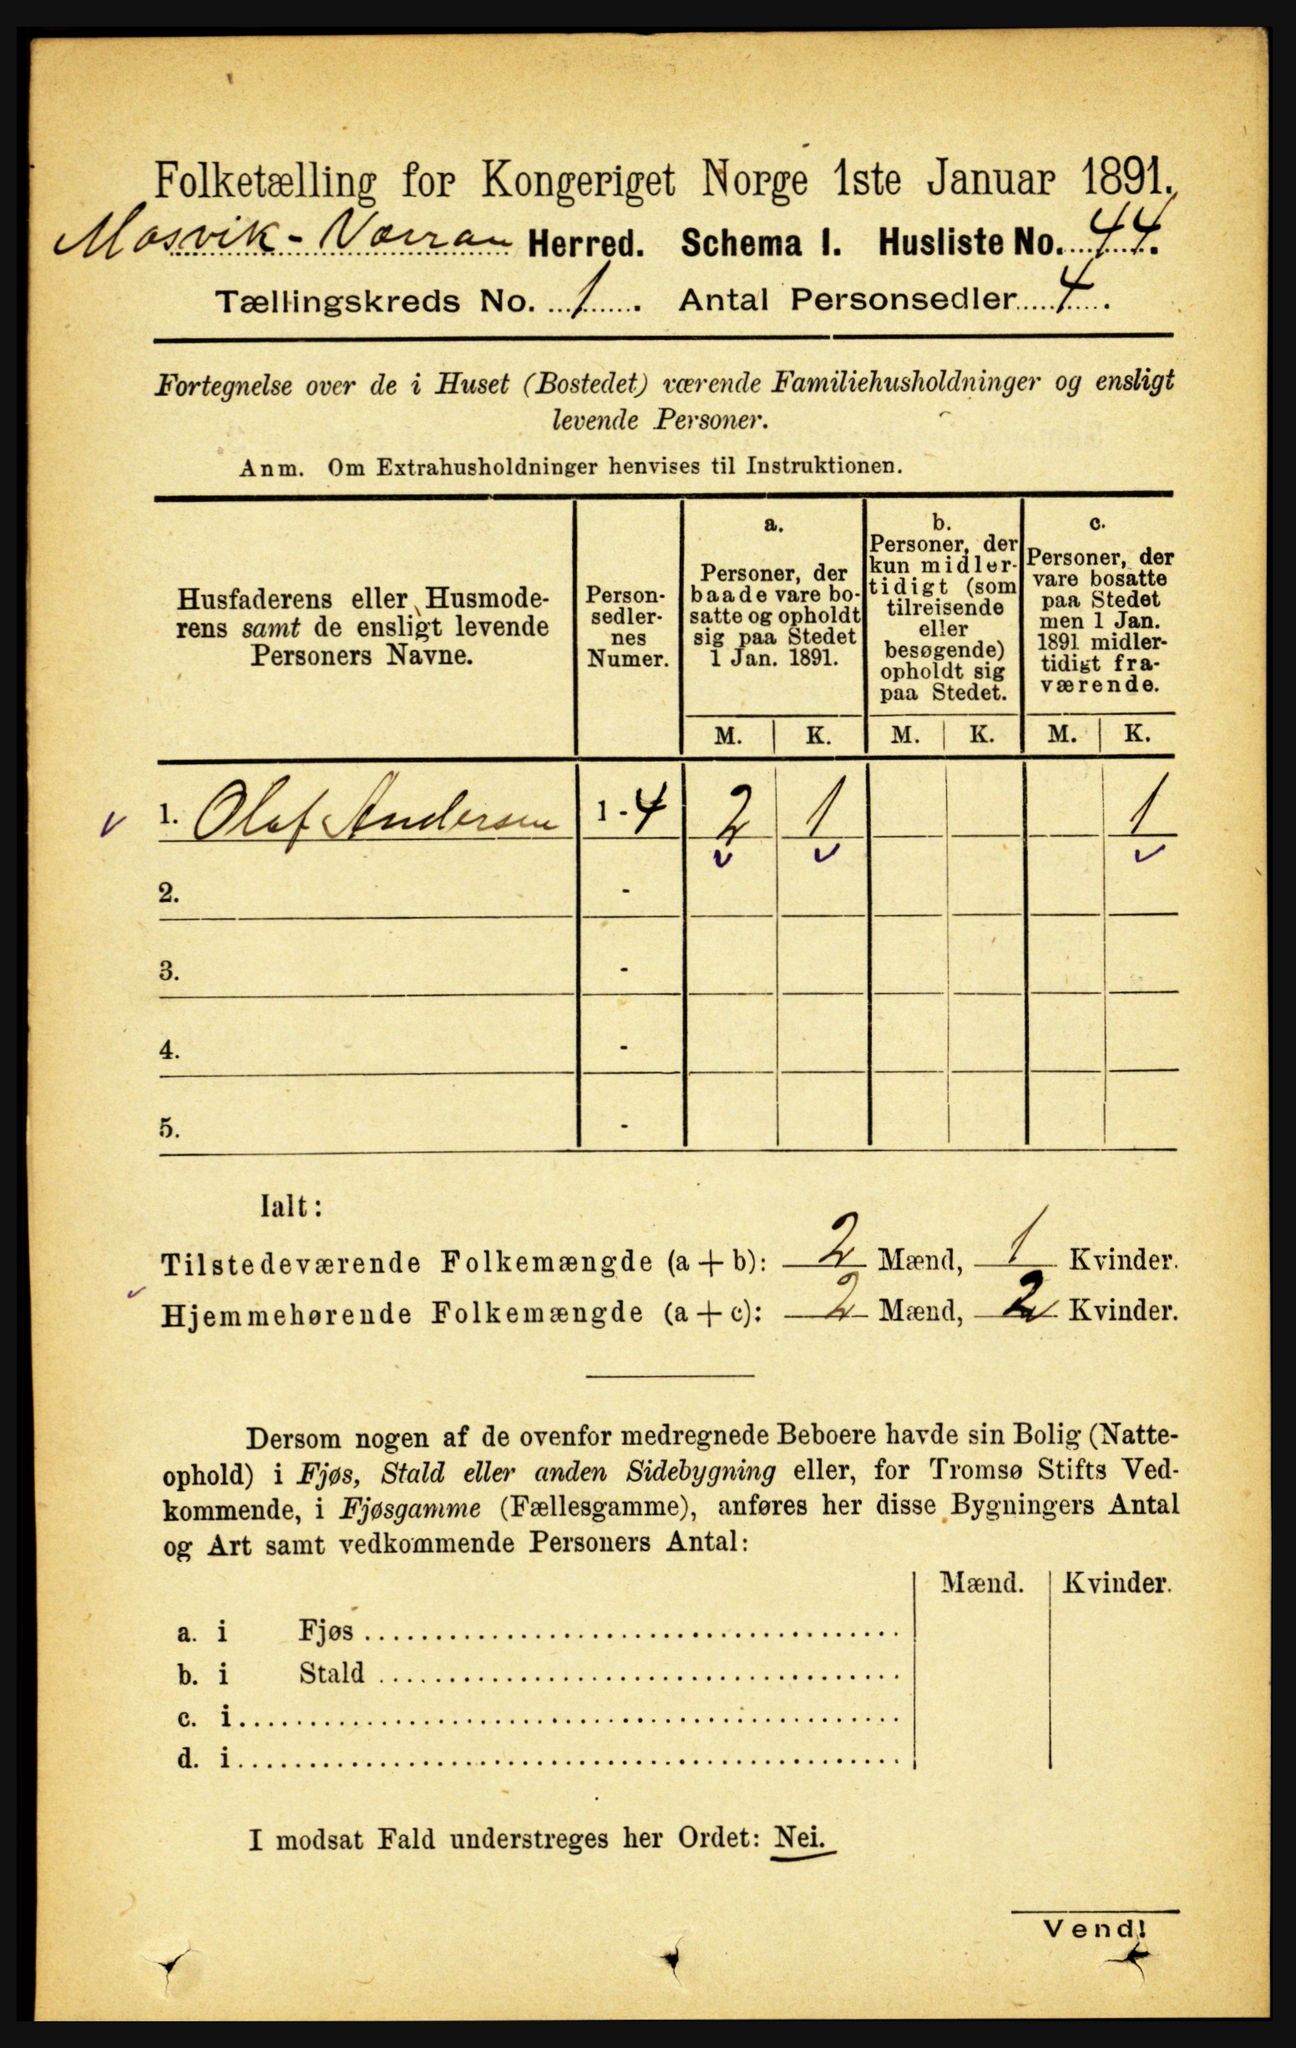 Folketælling for Kongeriget Norge 1ste Januar 1891.
Mosvik-Verran Herred. Schema I. Husliste No. 44.
Tællingskreds No. 1. Antal Personsedler 4.
Fortegnelse over de i Huset (Bostedet) værende Familiehusholdninger og ensligt
levende Personer.
Anm. Om Extrahusholdninger henvises til Instruktionen.
Husfaderens eller Husmode-
rens samt de ensligt levende
Personers Navne.
Person-
sedler-
nes
Numer.
a.
Personer, der
baade vare bo-
satte og opholdt
sig paa Stedet
1 Jan. 1891.
b.
Personer, der
kun midler-
tidigt (som
tilreisende
eller
besøgende)
opholdt sig
paa Stedet.
c.
Personer, der
vare bosatte
paa Stedet
men 1 Jan.
1891 midler-
tidigt fra-
værende.
M. K. M. K. M. K.
1. Olaf Andersen 1 - 4 2 1 1
2. -
3. -
4. -
5. -
Ialt:
Tilstedeværende Folkemængde (a + b): 2 Mænd, 1 Kvinder.
Hjemmehørende Folkemængde (a + c): 2 Mænd, 2 Kvinder.
Dersom nogen af de ovenfor medregnede Beboere havde sin Bolig (Natte-
ophold) i Fjøs, Stald eller anden Sidebygning eller, for Tromsø Stifts Ved-
kommende, i Fjøsgamme (Fællesgamme), anføres her disse Bygningers Antal
og Art samt vedkommende Personers Antal:
Mænd. Kvinder.
a. i Fjøs
b. i Stald
c. i
d. i
I modsat Fald understreges her Ordet: Nei.
Vend!